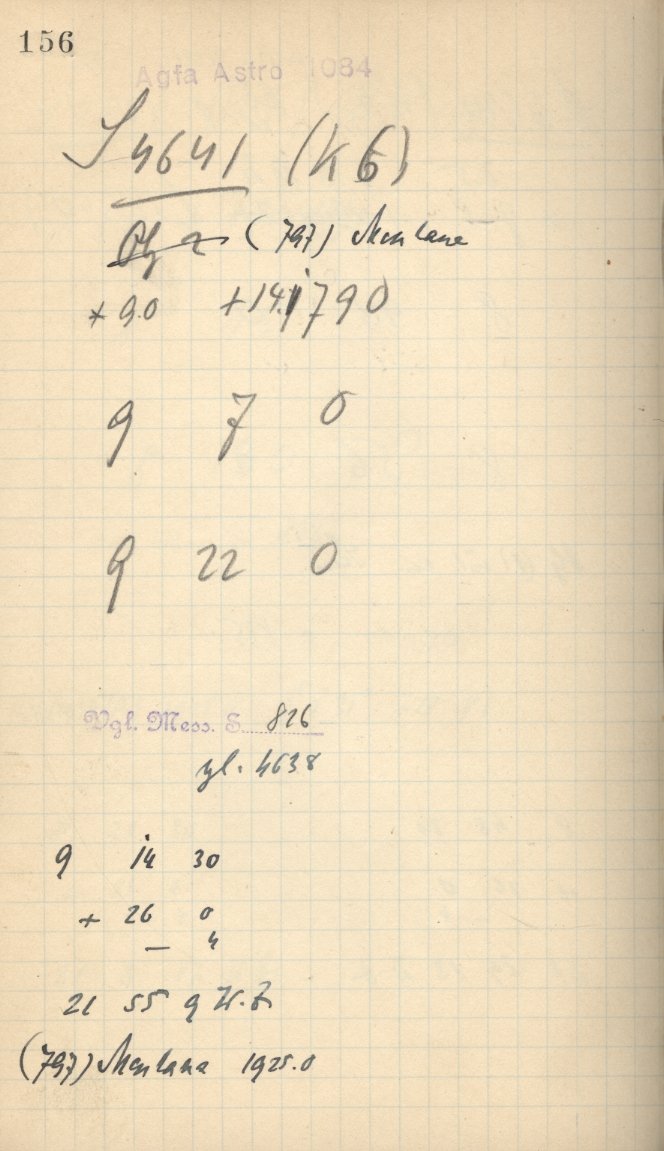 156
Agfa Astro 1084
S 4641 (K6)
Obj a (797) Montana
* 9.0 +14.1790
9 7 0
9 22 0
Vgl. Mess. S. 826
vgl. 4638
9 14 30
+ 26 0
— 4
21 55 9 W.Z
(797) Montana 1925.0